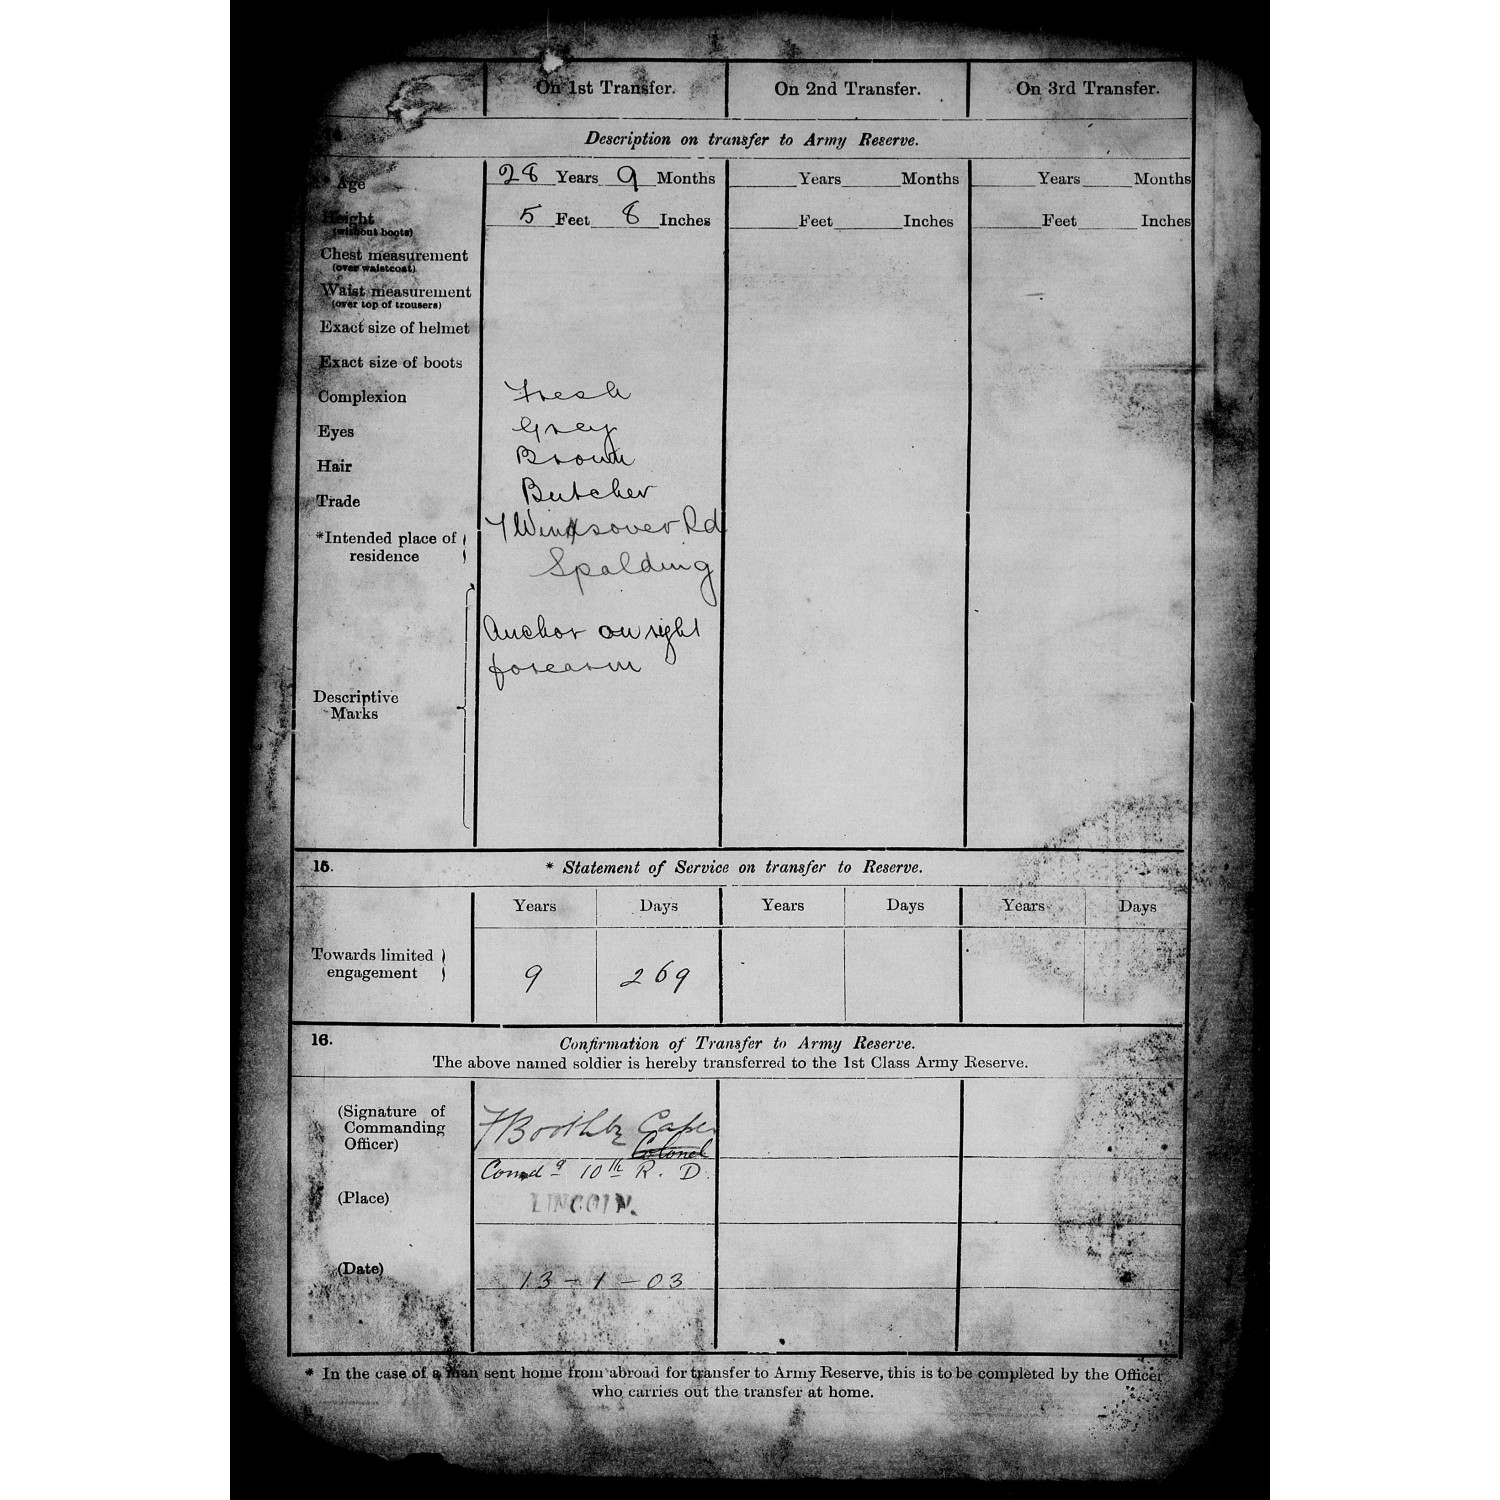 On 1st Transfer. On 2nd Transfer. On 3rd Transfer.
Description on transfer to Army Reserve.
* Age 28 Years 9 Months Years Months Years Months
Height 5 Feet 8 Inches Feet Inches Feet Inches
(without boots)
Chest measurement
(over waistcoat)
Waist measurement
(over top of trousers)
Exact size of helmet
Exact size of boots
Complexion Fresh
Eyes Grey
Hair Brown
Trade Butcher
*Intended place of residence 7 Winsover Rd
Spalding
Descriptive Marks Anchor on right
forearm
15. * Statement of Service on transfer to Reserve.
Years Days Years Days Years Days
Towards limited engagement 9 269
16. Confirmation of Transfer to Army Reserve.
The above named soldier is hereby transferred to the 1st Class Army Reserve.
(Signature of Commanding Officer) Boothby
Colonel
Comdg 10th R. D.
(Place) LINCOLN.
(Date) 13-1-03
* In the case of a man sent home from abroad for transfer to Army Reserve, this is to be completed by the Officer
who carries out the transfer at home.